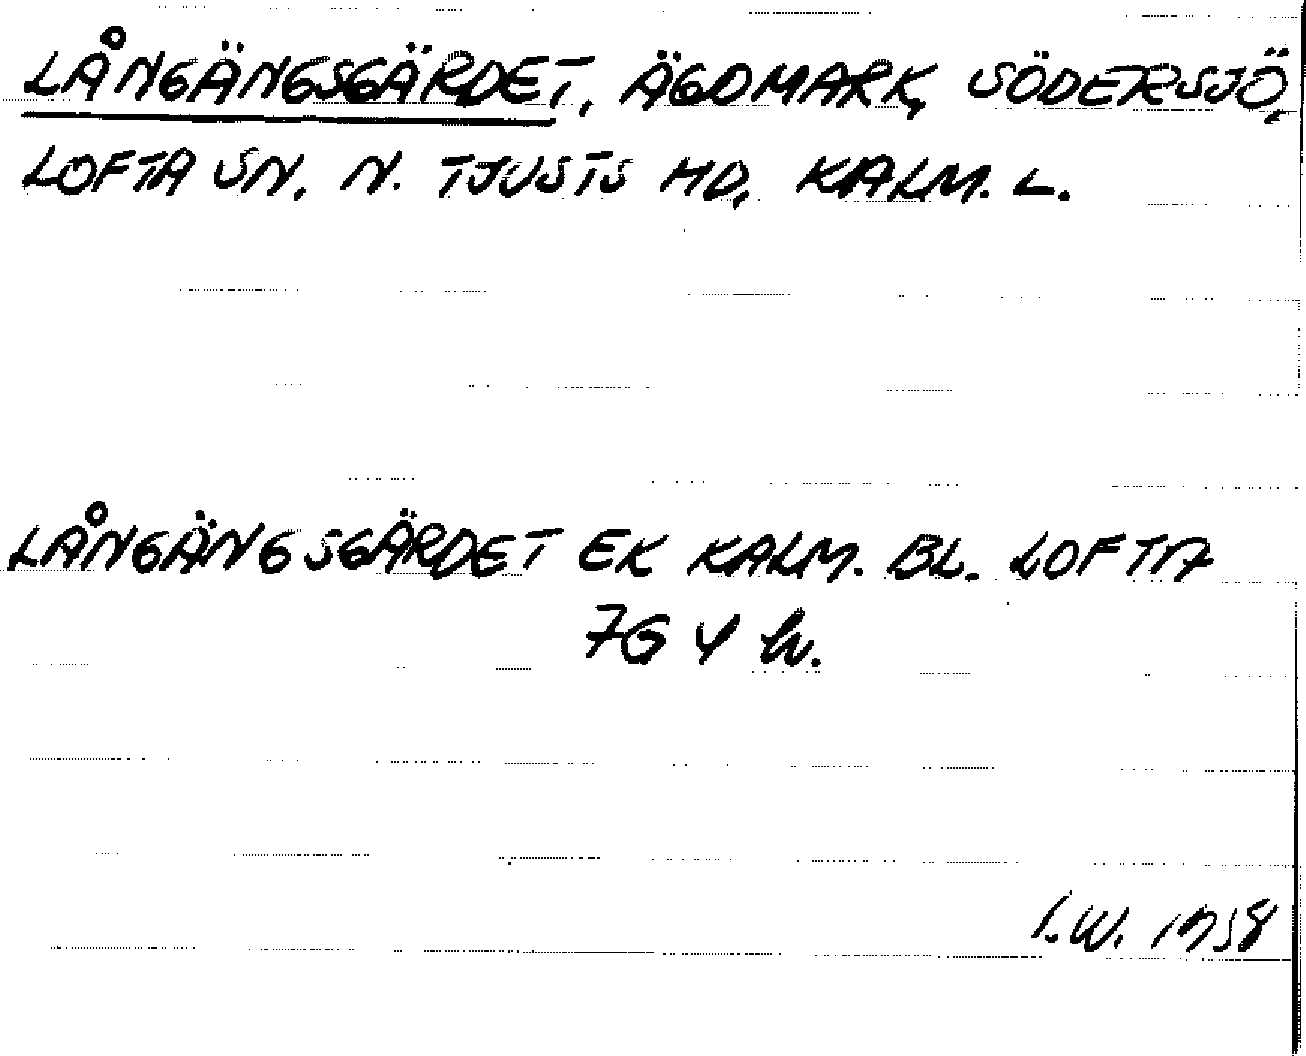 LÅNGÄNGSGÄRDET, ÄGOMARK, SÖDERSJÖ,
LOFTA SN. N. TJUSTS HD, KALM. L.
LÅNGÄNGSGÄRDET EK KALM. BL. LOFTA
7G 4 h.
I.W. 1958